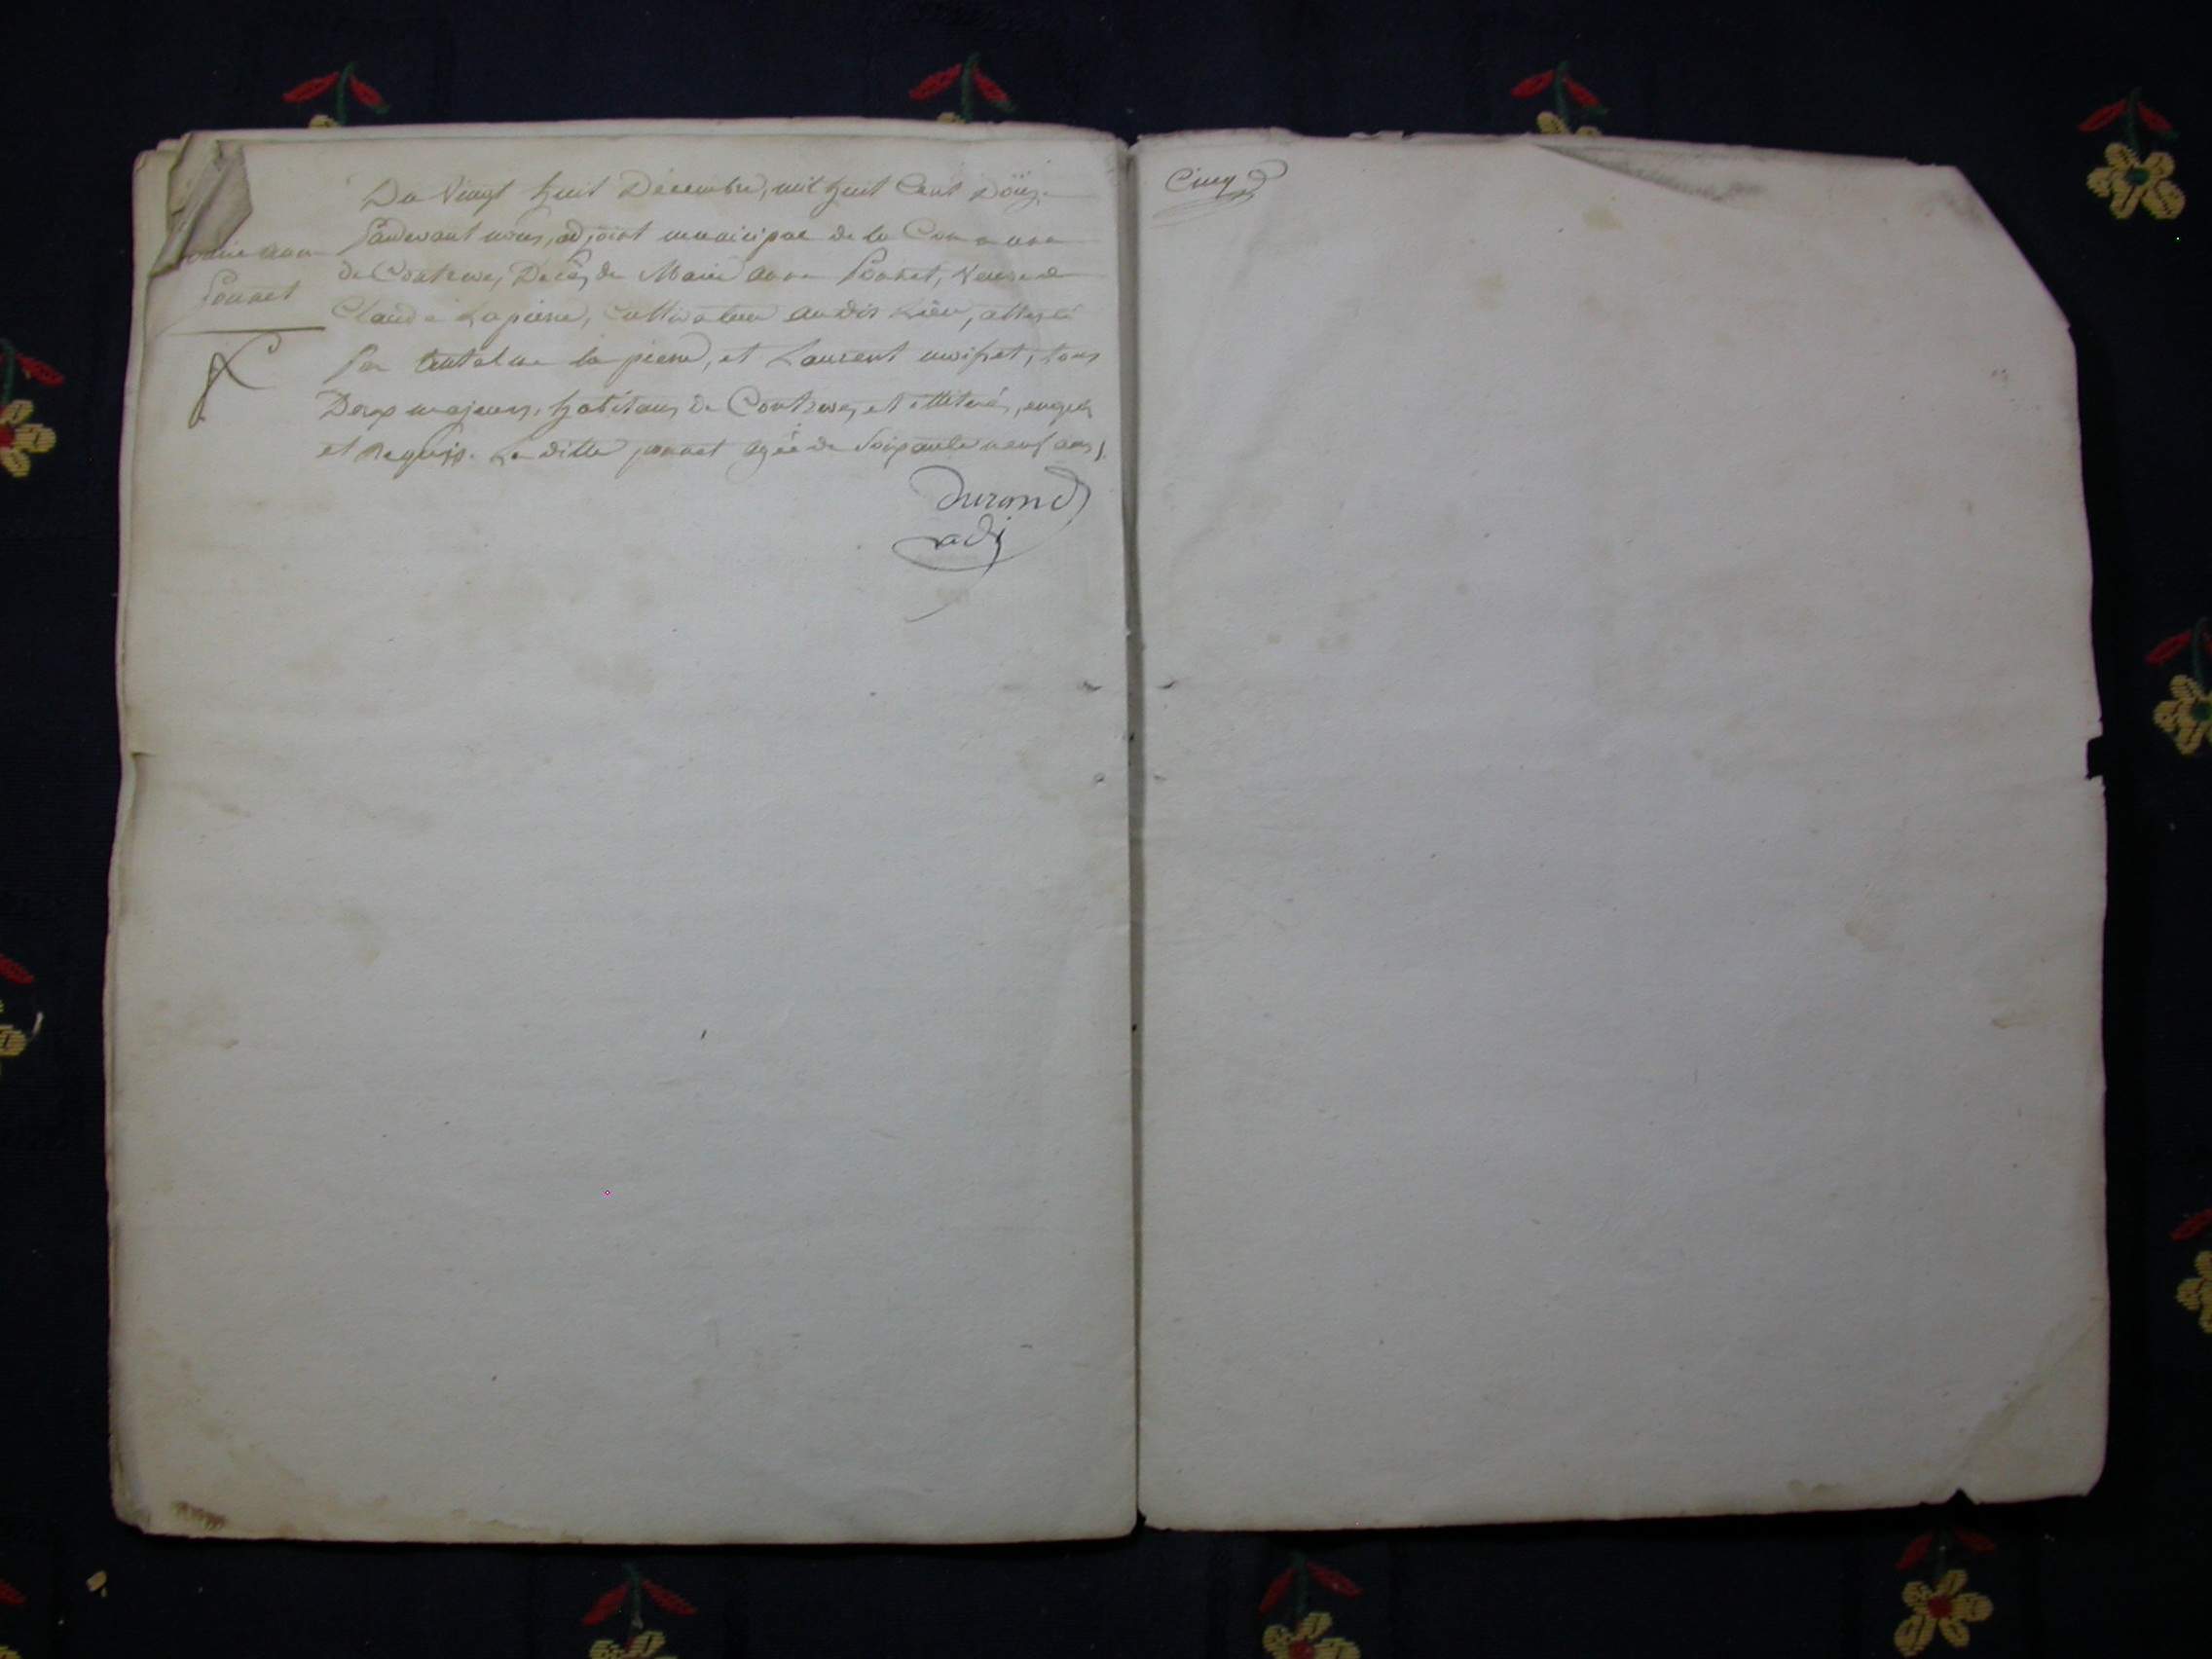 Du Vingt huit Décembre, mil huit Cent Douze
Pardevant nous, adjoint municipal de la Commune
de Contrevoz, Décès de Marie anne Ponnet, veuve de
Claude Lapierre, Cultivateur audit Lieu, attesté
Par Antelme la pierre, et Laurent, tous
Deux majeurs, habitans de Contrevoz, et illiterés, enquis
et Requis. La ditte ponnet agée de Soixante neuf ans
Durand
adj
Marie anne
Ponnet
Cinq